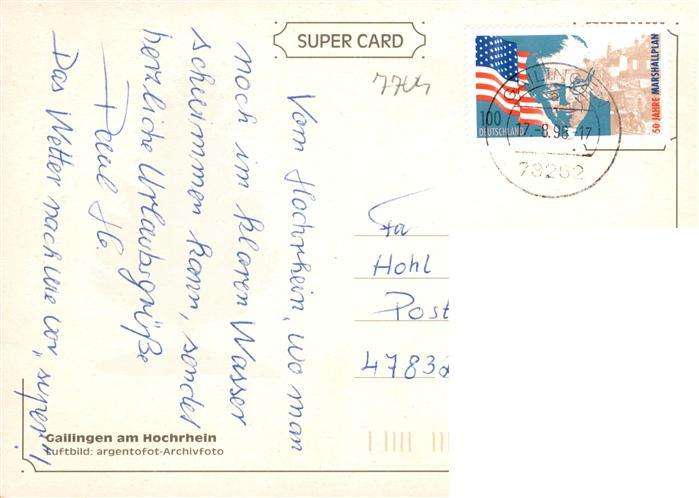 SUPER CARD
7764
100
DEUTSCHLAND
50 JAHRE MARSHALLPLAN
GAILINGEN
17.-8.98.-17
78262
Vom Hochrhein, wo man
noch im klaren Wasser
schwimmen kann, sendet
herzliche Urlaubsgrüße
Paul H.
Das Wetter nach wie vor „super“!
Fa
Hohl
Post
47832
Gailingen am Hochrhein
Luftbild: argentofot-Archivfoto